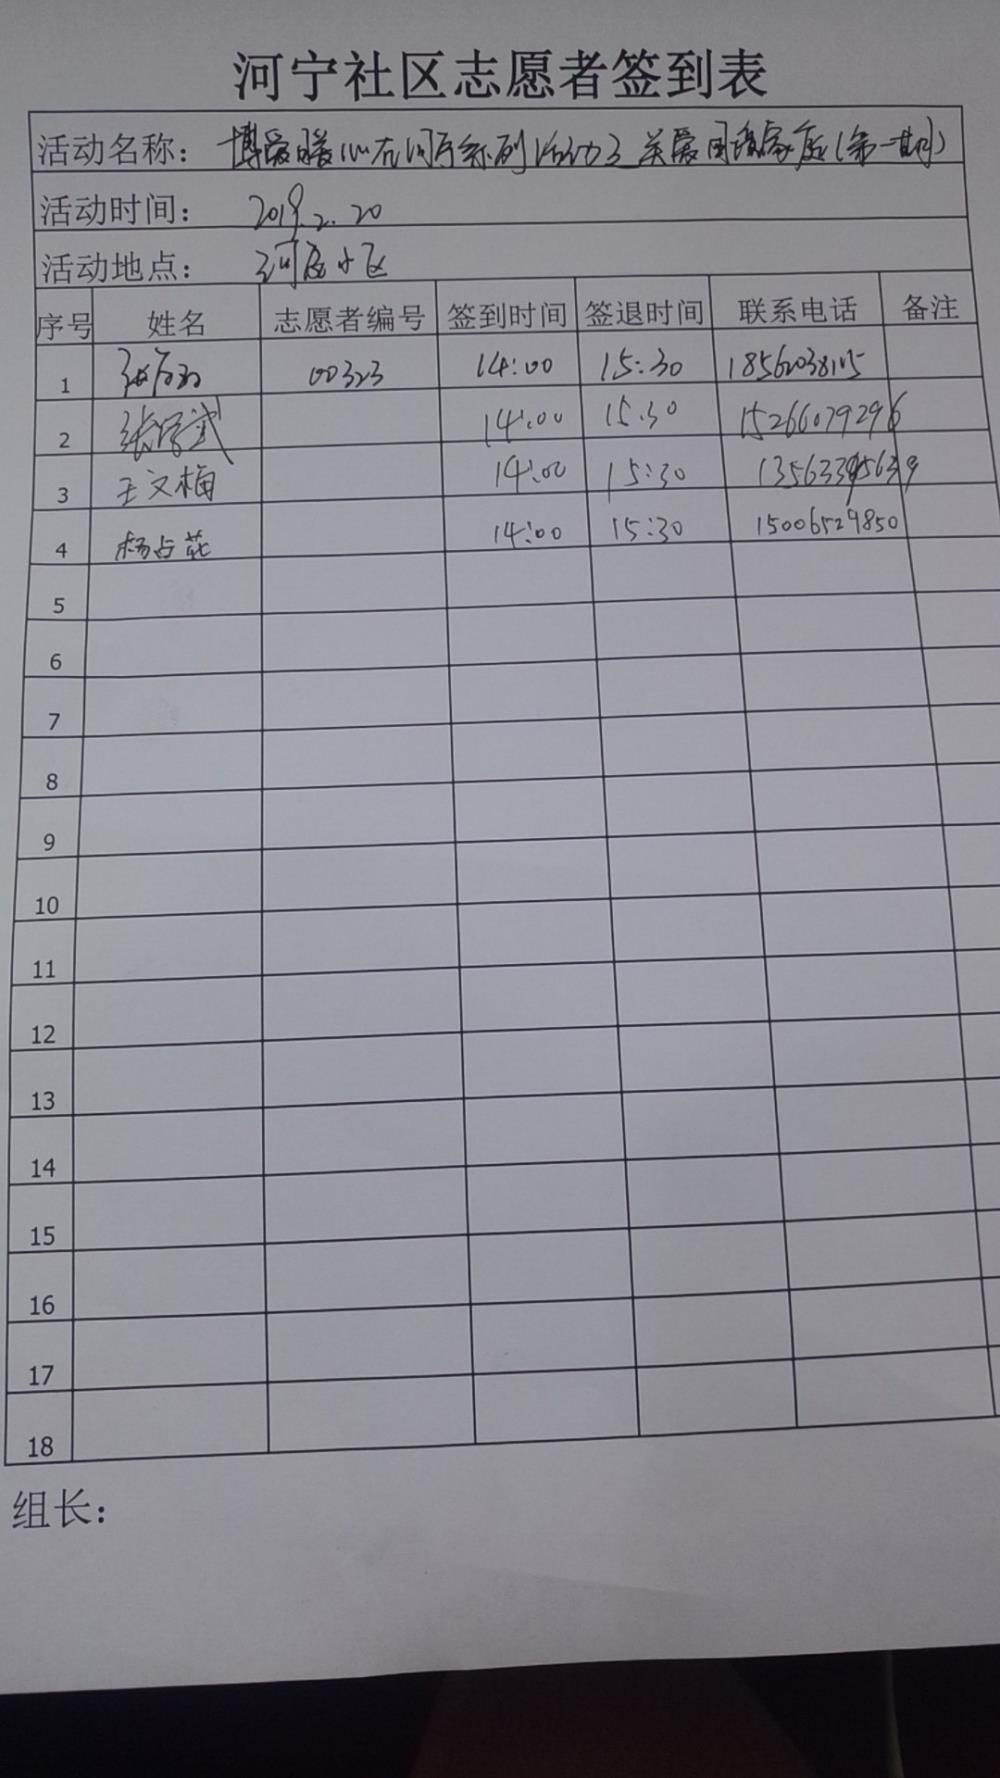 河宁社区志愿者签到表
活动名称： 博爱暖心在河宁系列活动之关爱困境家庭(第一期)
活动时间： 2019.2.20
活动地点： 河辰小区
序号 姓名 志愿者编号 签到时间 签退时间 联系电话 备注
1 00323 14:00 15:30 18562038115
2 张学武 14:00 15:30 15266079296
3 王文梅 14:00 15:30
4 杨占花 14:00 15:30 15006529850
5
6
7
8
9
10
11
12
13
14
15
16
17
18
组长：